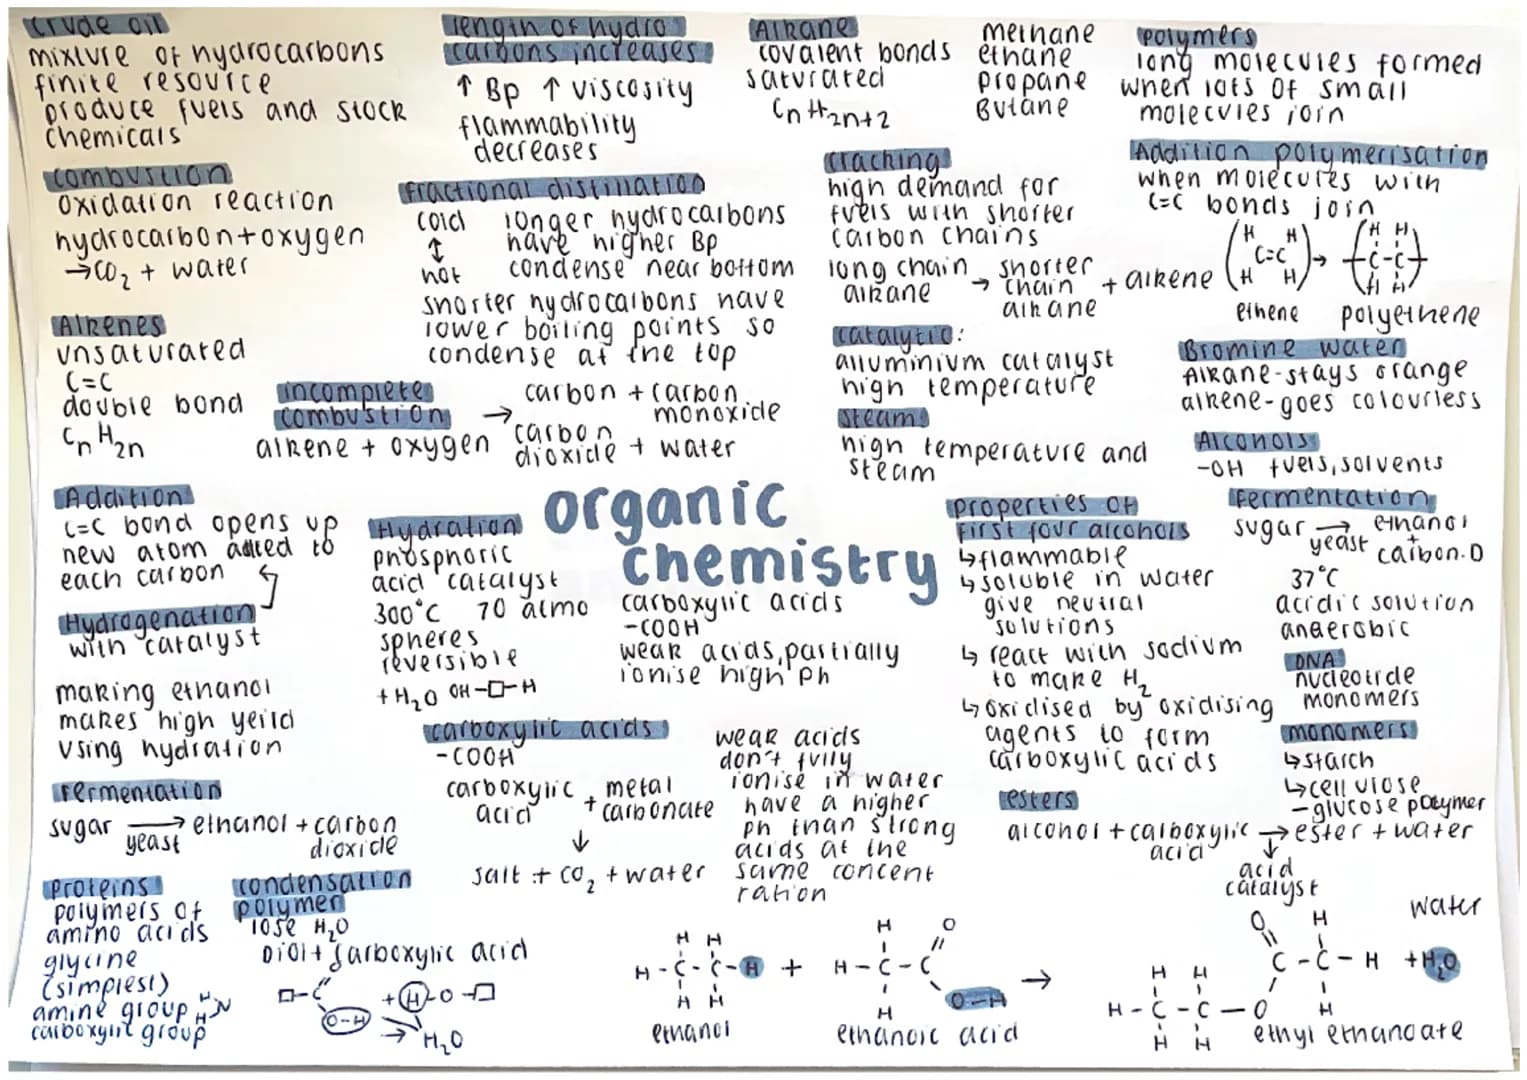 crude oil
mixture of hydrocarbons
finite resource
produce fuels and stock
chemicals
length of hydro
carbons increases
↑ Bp ↑ viscosity
flammability
decreases
Alkane
covalent bonds
saturated
CnH2n+2
methane
ethane
propane
Butane
polymers
long molecules formed
when lots of small
molecules join
combustion
oxidation reaction
hydrocarbon+oxygen
→CO2 + water
fractional distillation
cold
↕
hot
longer hydrocarbons
have higher Bp
condense near bottom
shorter hydrocarbons have
lower boiling points so
condense at the top
cracking
high demand for
fuels with shorter
carbon chains
long chain
alkane
→ shorter
chain
alkane
+ alkene
Addition polymerisation
when molecules with
C=C bonds join
H H
C=C
H H
→
H H
-C-C-
H H
ethene
polyethene
Alkenes
unsaturated
C=C
double bond
CnH2n
incomplete
combustion
alkene + oxygen
→ carbon + carbon
monoxide
carbon
dioxide + water
catalytic:
alluminium catalyst
high temperature
steam:
high temperature and
steam
Bromine water
Alkane-stays orange
alkene-goes colourless
Alcohols
-OH fuels, solvents
Addition
C=C bond opens up
new atom added to
each carbon
Hydrogenation
with catalyst
making ethanol
makes high yeild
using hydration
Hydration
phosphoric
acid catalyst
300°C 70 atmo
spheres
reversible
+H2O OH-□-H
organic
chemistry
carboxylic acids
-COOH
weak acids, partially
ionise high ph
properties of
first four alcohols
↳flammable
↳soluble in water
give neutral
solutions
↳ react with sodium
to make H2
↳oxidised by oxidising
agents to form
carboxylic acids
Fermentation
sugar → ethanol
yeast +
carbon.D
37°C
acidic solution
anaerobic
DNA
nucleotide
monomers
monomers
↳starch
↳cellulose
-glucose polymer
Fermentation
sugar → ethanol + carbon
yeast dioxide
carboxylic acids
-COOH
carboxylic + metal
acid carbonate
↓
salt + CO2 + water
weak acids
don't fully
ionise in water
have a higher
ph than strong
acids at the
same concent
ration
esters
alcohol + carboxylic → ester + water
acid ↓
acid
catalyst
proteins
polymers of
amino acids
glycine
(simplest)
amine group H N
H
carboxylic group
condensation
polymer
lose H2O
Diol + carboxylic acid
□-C
O-H
+H-O-□
→ H2O
H H
H-C-C-H
H H
ethanol
+
H O
H-C-C
H O-H
ethanoic acid
→
O H
C-C-H
H H H
H-C-C-O
H H
ethyl ethanoate
water
+H2O